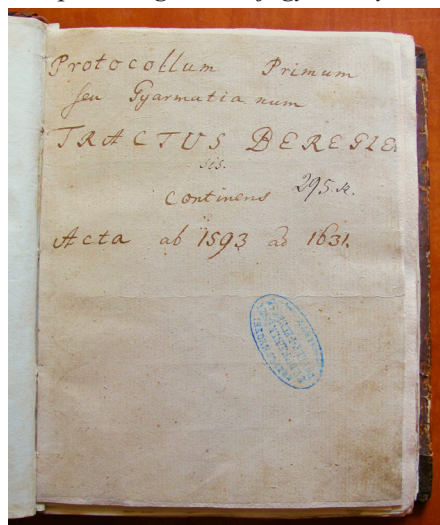 Protocollum Primum
seu Gyarmatianum
TRACTUS BEREGIEN
sis.
continens 295. sz.
Acta ab 1593 ad 1631.